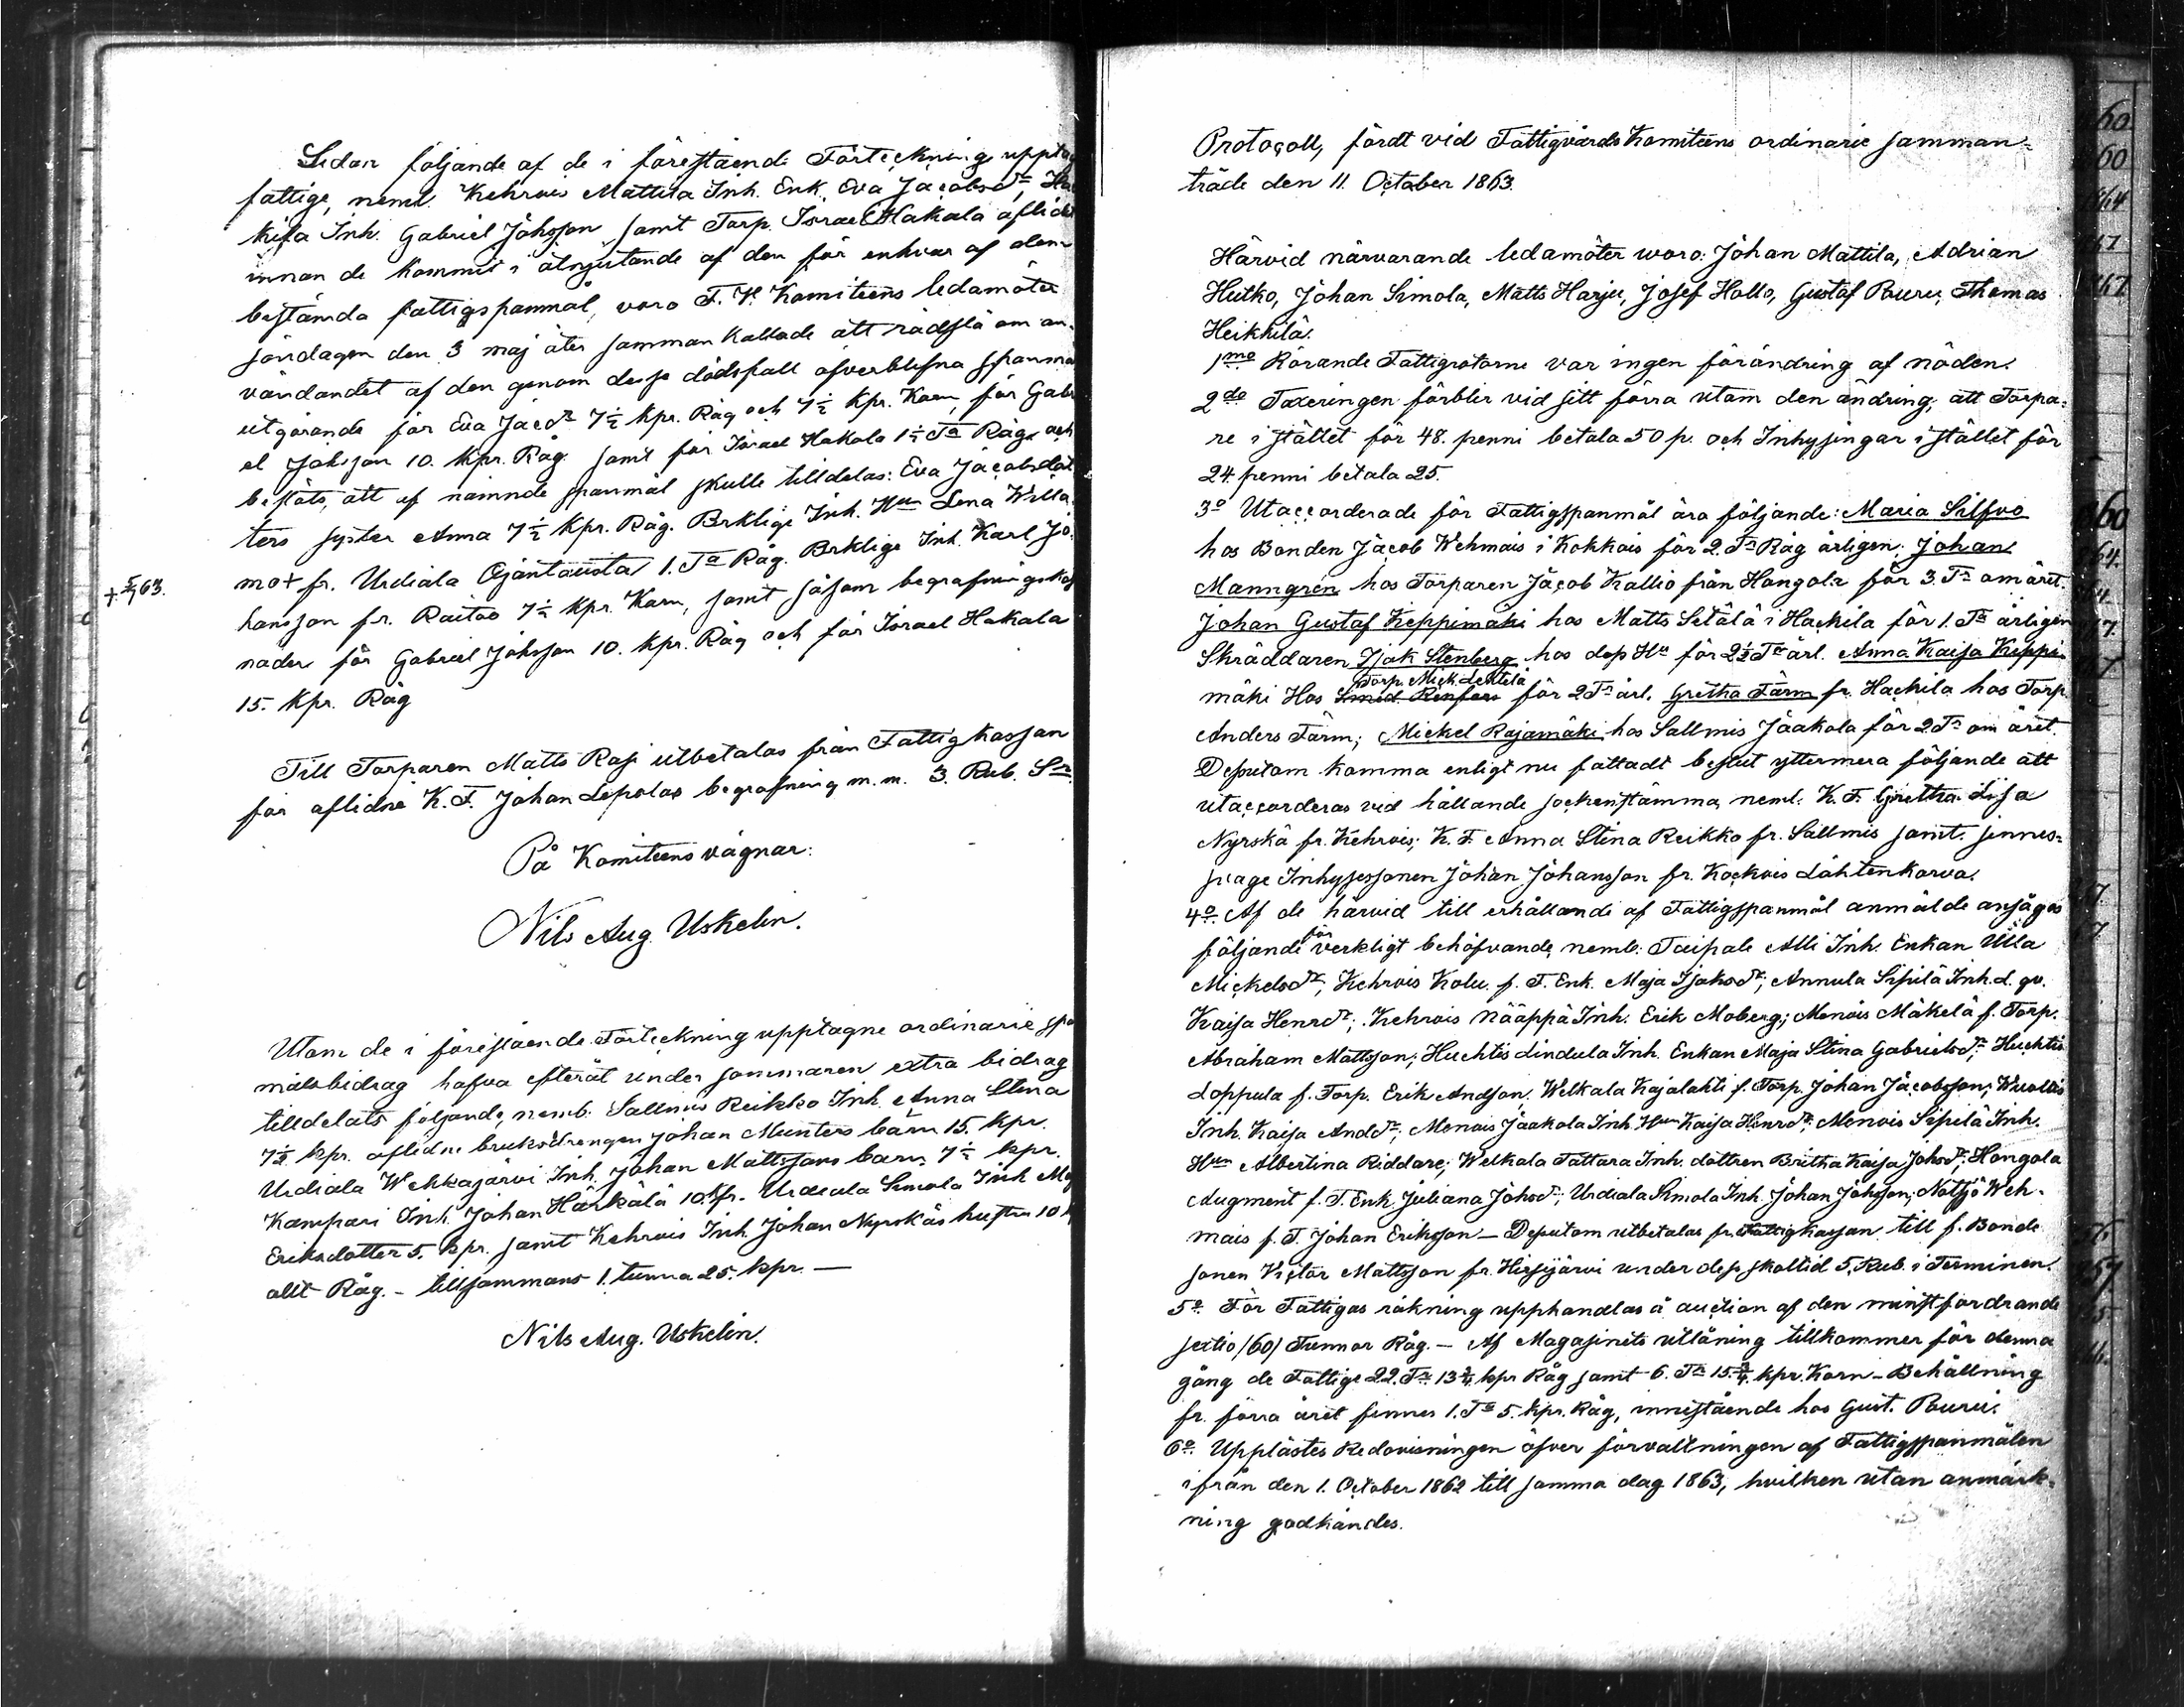 Sedan följande af de i förestående Förteckning uppta
fattige, neml. Kehrois Mattila Inh. Enk. Eva Jacobsdr, Ha
kila Inh. Gabriel Johsson, samt Torp. Israel Hakala aflid
innan de kommit i åtnjutande af den för enhvar af dem
bestämda fattigspanmål, voro F. V. Komiteens ledamöter
söndagen den 3 maj åter samman kallade att rådslå om an-
vändandet af den genom desse dödsfall öfverblefna spanmå
utgörande för Eva Jacdr 7½ kpr. Råg och 7½ kpr. Korn, för Gabri
el Johsson 10. kpr. Råg samt för Israel Hakala 1½ Ta Råg och
beslöts, att af nämnde spanmål skulle tilldelas: Eva Jacobsdot
ters syster Anna 7½ kpr. Råg. Bräklige Inh. Hun Lena Willa
mo + fr. Urdiala Ojantausta 1. Ta Råg. Bräklige Inh. Karl Jo-
+ 5/7 63.
hansson fr. Raitoo 7½ kpr. Korn, samt såsom begrafningskost
nader för Gabriel Johsson 10. kpr. Råg och för Israel Hakala
15. kpr. Råg
Till Torparen Matts Rasi utbetalas från Fattigkassan
för aflidne K. F. Johan Lepolas begrafning m. m. 3. Rub. Sr.
På Komiteens vägnar:
Nils Aug. Uskelin.
Utom de i förestående Förteckning upptagne ordinarie spa
målsbidrag hafva efteråt under sommaren extra bidrag
tilldelats följande, nemb. Sallmis Reikko Inh. Anna Stina
7½ kpr. aflidne bruksdrengen Johan Munters barn 15. kpr.
Urdiala Wekkajärvi Inh. Johan Mattssons barn 7½ kpr.
Kampari Inh. Johan Härkälä 10. kpr. Urdiala Simola Inh Maj
Eriksdotter 5. kpr. samt Kehrois Inh. Johan Nyrskäs hustru 10 k
allt Råg. - tillsammans 1. tunna 25. kpr. —
Nils Aug. Uskelin.
Protocoll, fördt vid Fattigvårds Komiteens ordinarie samman-
träde den 11. October 1863.
Härvid närvarande ledamöter woro: Johan Mattila, Adrian
Hutko, Johan Simola, Matts Harju, Josef Hollo, Gustaf Buru, Thomas
Heikkilä.
1mo Rörande Fattigrotarne var ingen förändring af nöden.
2do Taxeringen förblir vid sitt förra utom den ändring, att Torpa-
re i stället för 48. penni betala 50 p. och Inhysingar i stället för
24. penni betala 25.
3o Utaccorderade för Fattigspanmål äro följande: Maria Silfvo
hos Bonden Jacob Wehmais i Kokkois för 2. Tr Råg årligen; Johan
Manngrén hos Torparen Jacob Kallio från Hongola för 3. Tr om året.
Johan Gustaf Keppimäki hos Matts Sitälä i Hackila för 1. Ta årligen
Skräddaren Isak Stenberg hos dess Hu för 2½ Tr årl. Anna Kaisa Keppi-
Torp. Mick. Lentila
mäki Hos Smed Renfors för 2 Tr årl. Gretha Färm fr. Hackila hos Torp.
Anders Färm; Mickel Rajamäki hos Sallmis Jaakola för 2 Tr om året.
Desutom komma enligt nu fattadt beslut yttermera följande att
utaccorderas vid hållande sockenstämma, neml. K. F. Gretha Lisa
Nyrskä fr. Kehrois; K. F. Anna Stina Reikko fr. Sallmis samt sinnes-
svage Inhysessonen Johan Johansson fr. Kockois Lähtenkorva.
4o Af de härvid till erhållande af Fattigspanmål anmälde ansågos
följande för verkligt behöfvande, nemb. Taipale Alli Inh. Enkan Ulla
Mickelsdr; Kehrois Kolu f. T. Enk. Maja Isaksdr; Annula Sipilä Inh. d. qv.
Kaisa Henrdr; Kehrois Nääppä Inh. Erik Moberg; Monois Mäkelä f. Torp.
Abraham Mattsson; Huchtis Lindula Inh. Enkan Maja Stina Gabrielsdr; Huchtis
Loppula f. Torp. Erik Andsson. Welkala Kajalahti f. Torp. Johan Jacobsson; Wuoltis
Inh. Kaisa Anddr; Monois Jaakola Inh. Hun Kaisa Henrdr; Monois Sipilä Inh.
Hun Albertina Riddare; Welkala Tattara Inh. dottren Britha Kaisa Johsdr; Hongola
Augment f. T. Enk. Juliana Johsdr; Urdiala Simola Inh. Johan Johsson; Notsjö Weh-
mais f. T. Johan Eriksson — Desutom utbetalas fr. Fattigkassan till f. Bonde
sonen Victor Mattsson fr. Hirsijärvi under dess skoltid 5. Rub. i Terminen.
5o För Fattigas räkning upphandlas å auction af den minstfordrande
sextio /60/ Tunnor Råg. — Af Magasinets utlåning tillkommer för denna
gång de Fattige 22. Tr 13¾ kpr Råg samt 6. Tr 15¾. kpr. Korn — Behållning
fr. förra året finnes 1. Ta 5. kpr. Råg, innestående hos Gust. Buru.
6o. Upplästes Redovisningen öfver förvaltningen af Fattigspanmålen
ifrån den 1. October 1862 till samma dag 1863, hvilken utan anmärk-
ning godkändes.